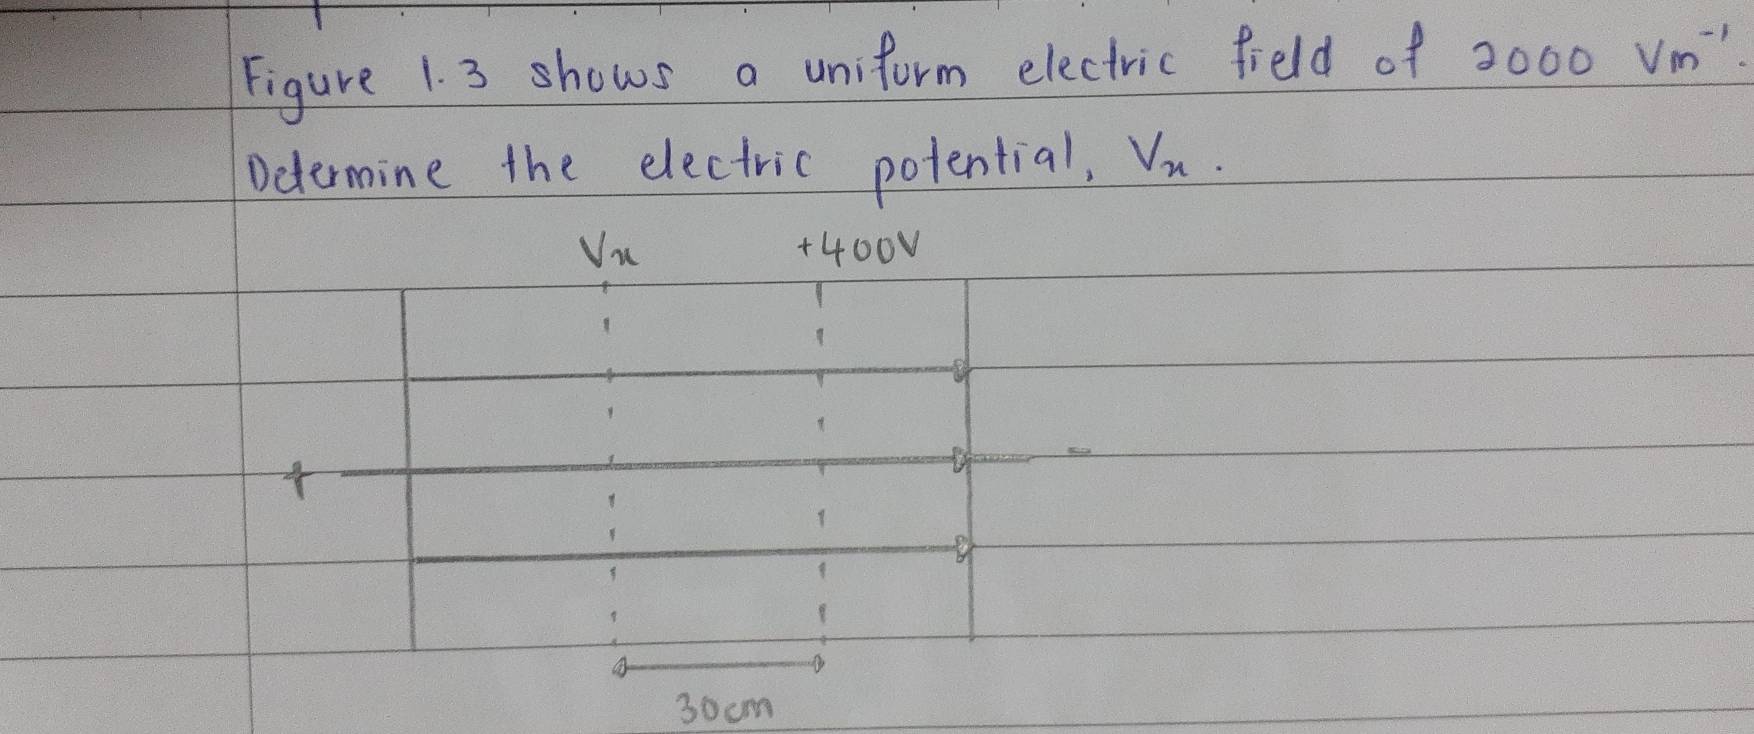 Figure 1.3 shows a uniform electric field of 2000 Vm⁻¹.
Determine the electric potential, Vx.
Vx +400V
+ -
30cm